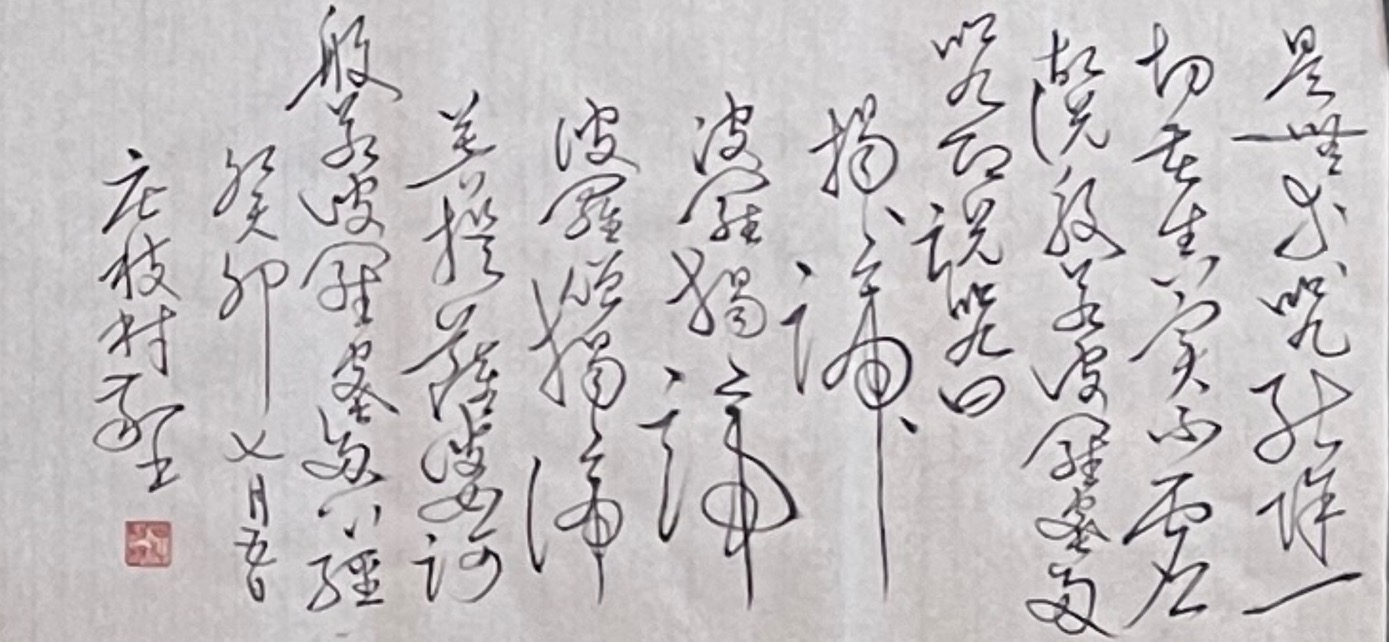 是無等等咒能除一
切苦真實不虛
故說般若波羅蜜多
咒即說咒曰
揭、諦、
波羅揭諦
波羅僧揭諦
菩提薩婆訶
般若波羅蜜多心經
癸卯七月五日
庄枝村